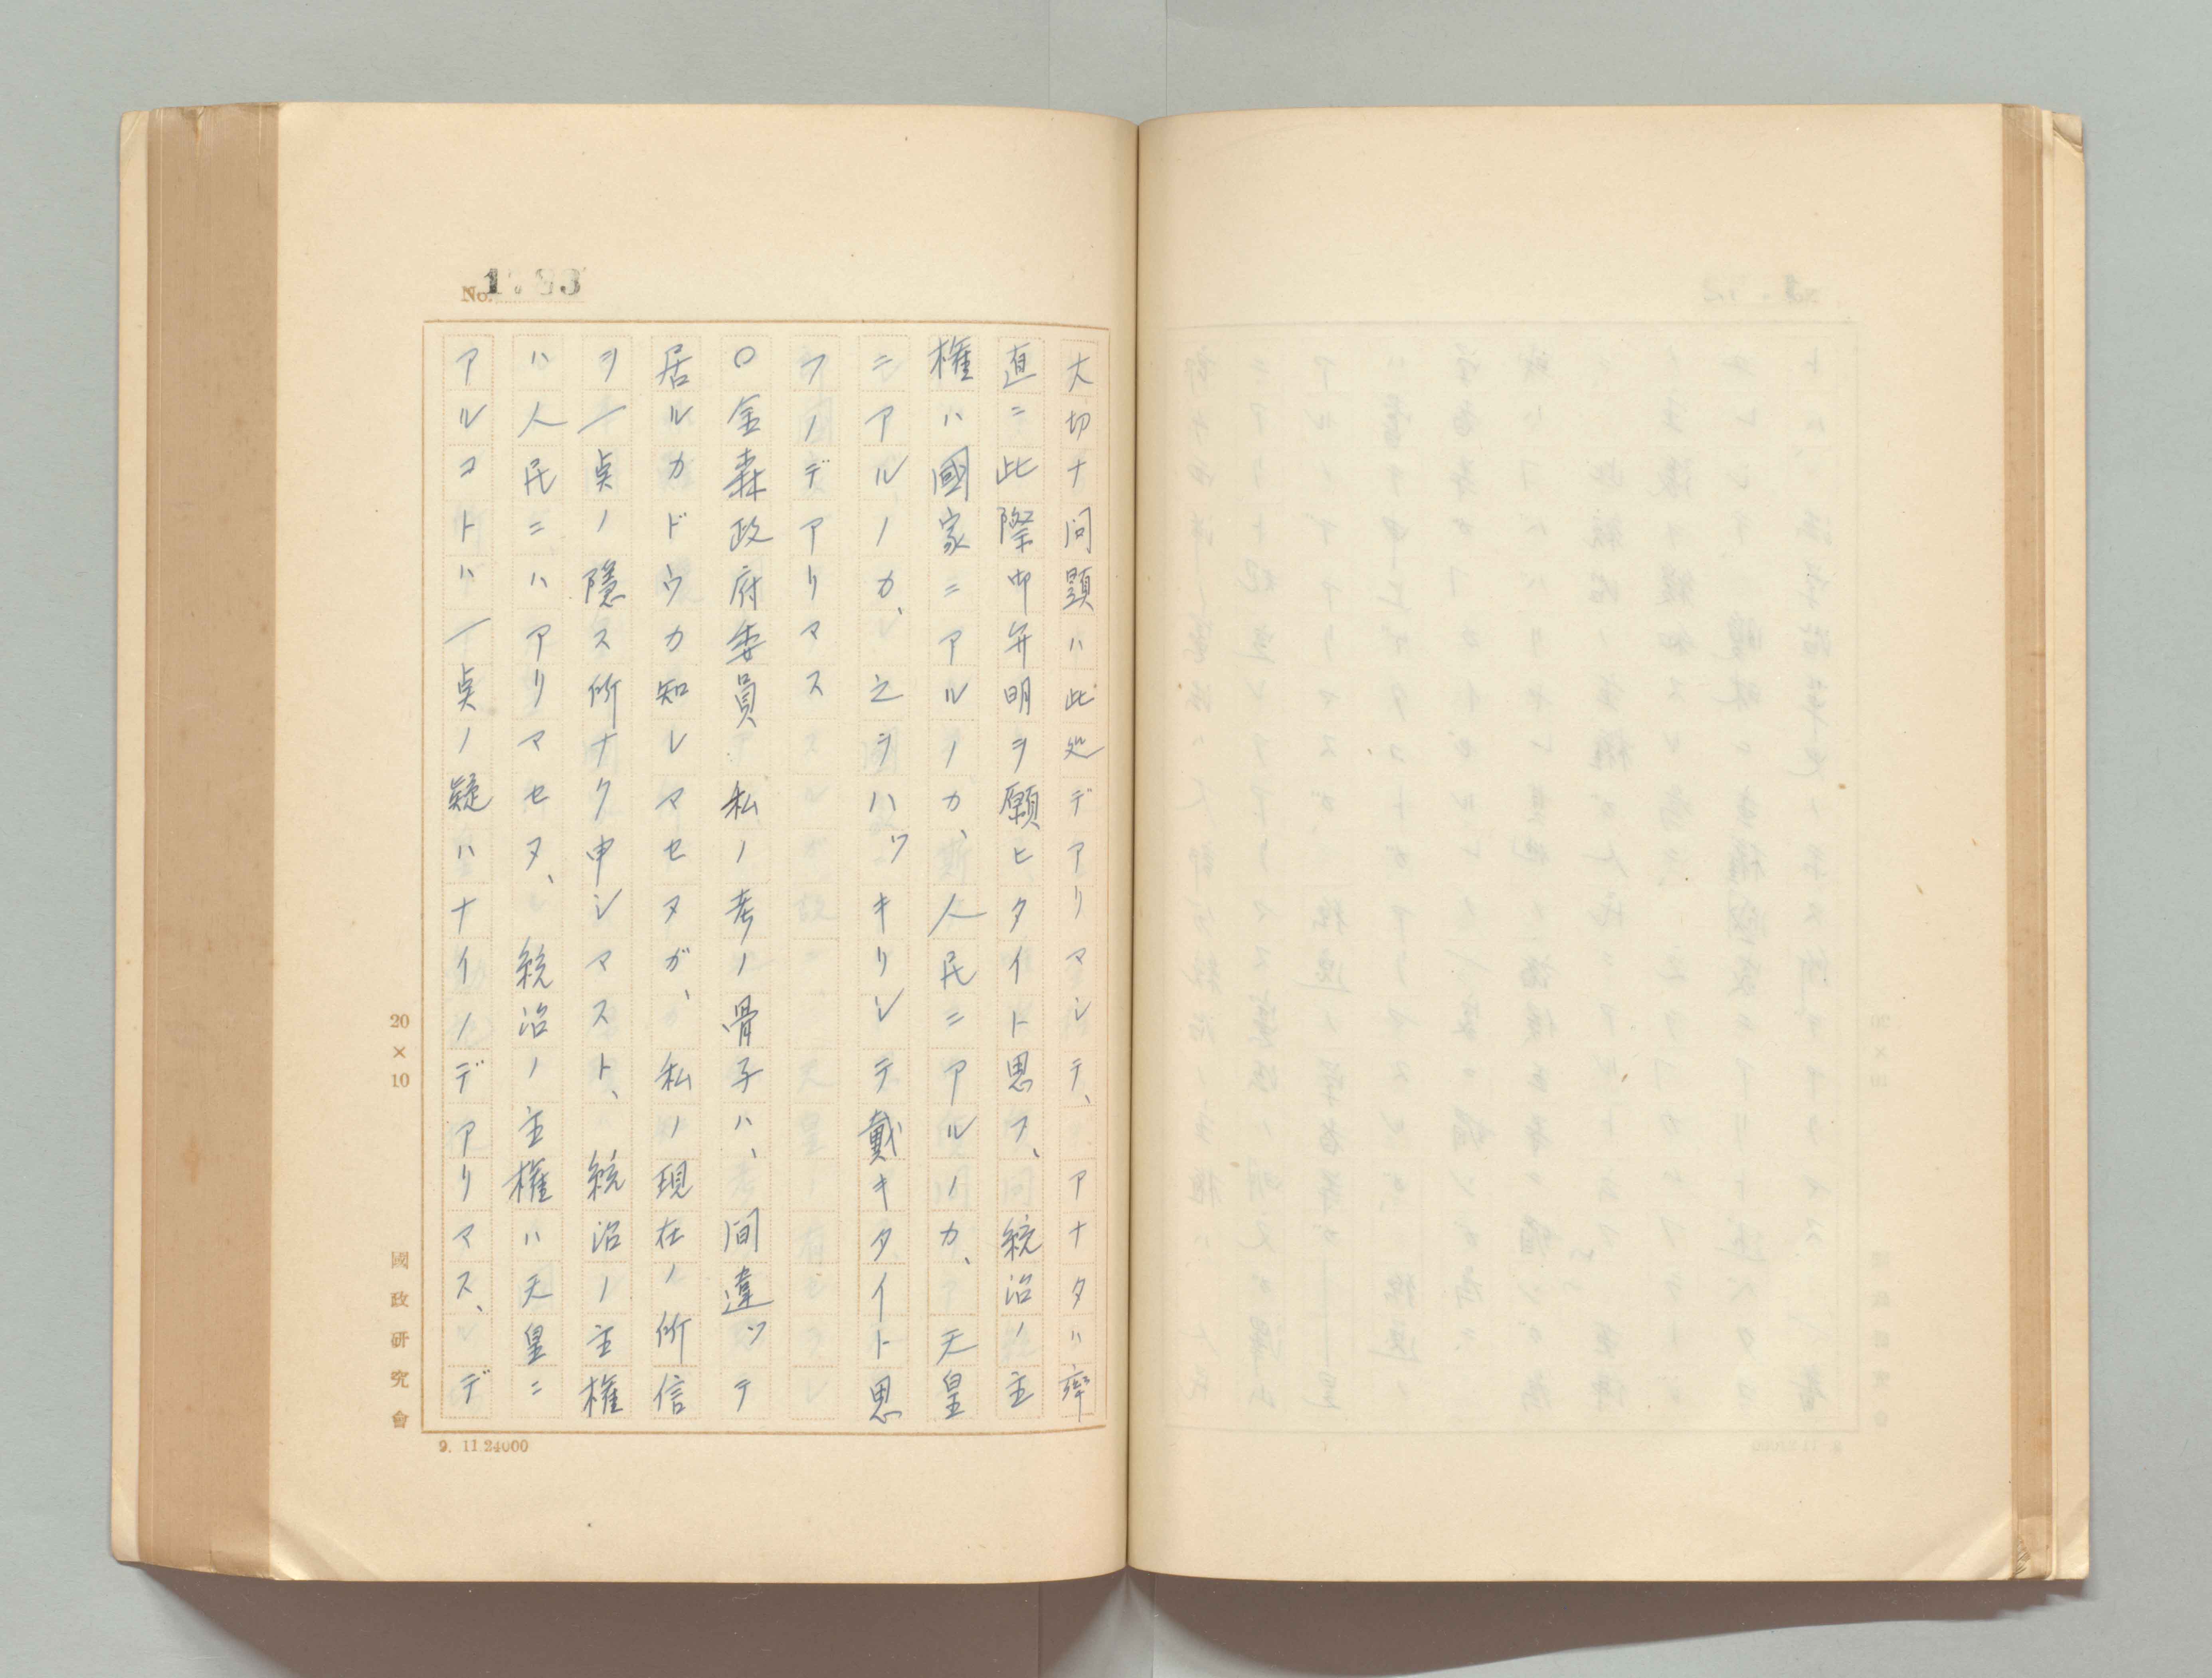 No.
大切ナ問題ハ此処デアリマシテ、アナタハ率
直ニ此際御弁明ヲ願ヒタイト思フ、統治ノ主
権ハ國家ニアルノカ、人民ニアルノカ、天皇
ニアルノカ、之ヲハッキリシテ戴キタイト思
フノデアリマス
〇金森政府委員 私ノ考ノ骨子ハ、間違ッテ
居ルカドウカ知レマセヌガ、私ノ現在ノ所信
ヲ一点ノ隱ス所ナク申シマスト、統治ノ主権
ハ人民ニハアリマセヌ、統治ノ主権ハ天皇ニ
アルコトハ一点ノ疑ハナイノデアリマス、デ
20×10
國政研究會
9. 11.24000